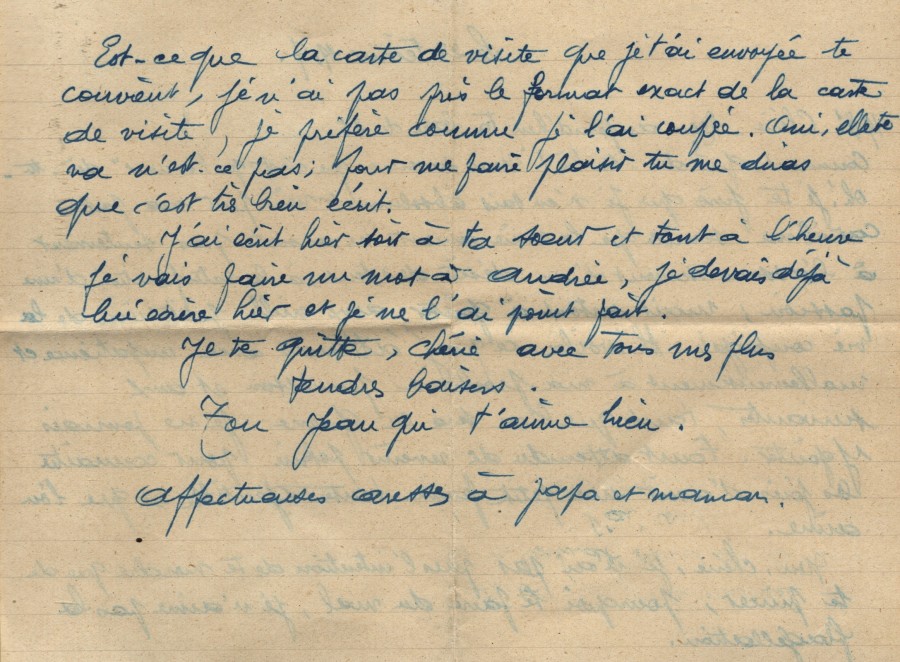 Est-ce que la carte de visite que je t'ai envoyée te
convient, je n'ai pas pris le format exact de la carte
de visite, je préfère comme je l'ai coupée. Oui, elle te
va n'est-ce pas; pour me faire plaisir tu me diras
que c'est très bien écrit.
J'ai écrit hier soir à ta soeur et tout à l'heure
je vais faire un mot à Andrée, je devais déjà
lui écrire hier et je ne l'ai point fait.
Je te quitte, chérie avec tous mes plus
tendres baisers.
Ton Jean qui t'aime bien.
Affectueuses caresses à papa et maman.